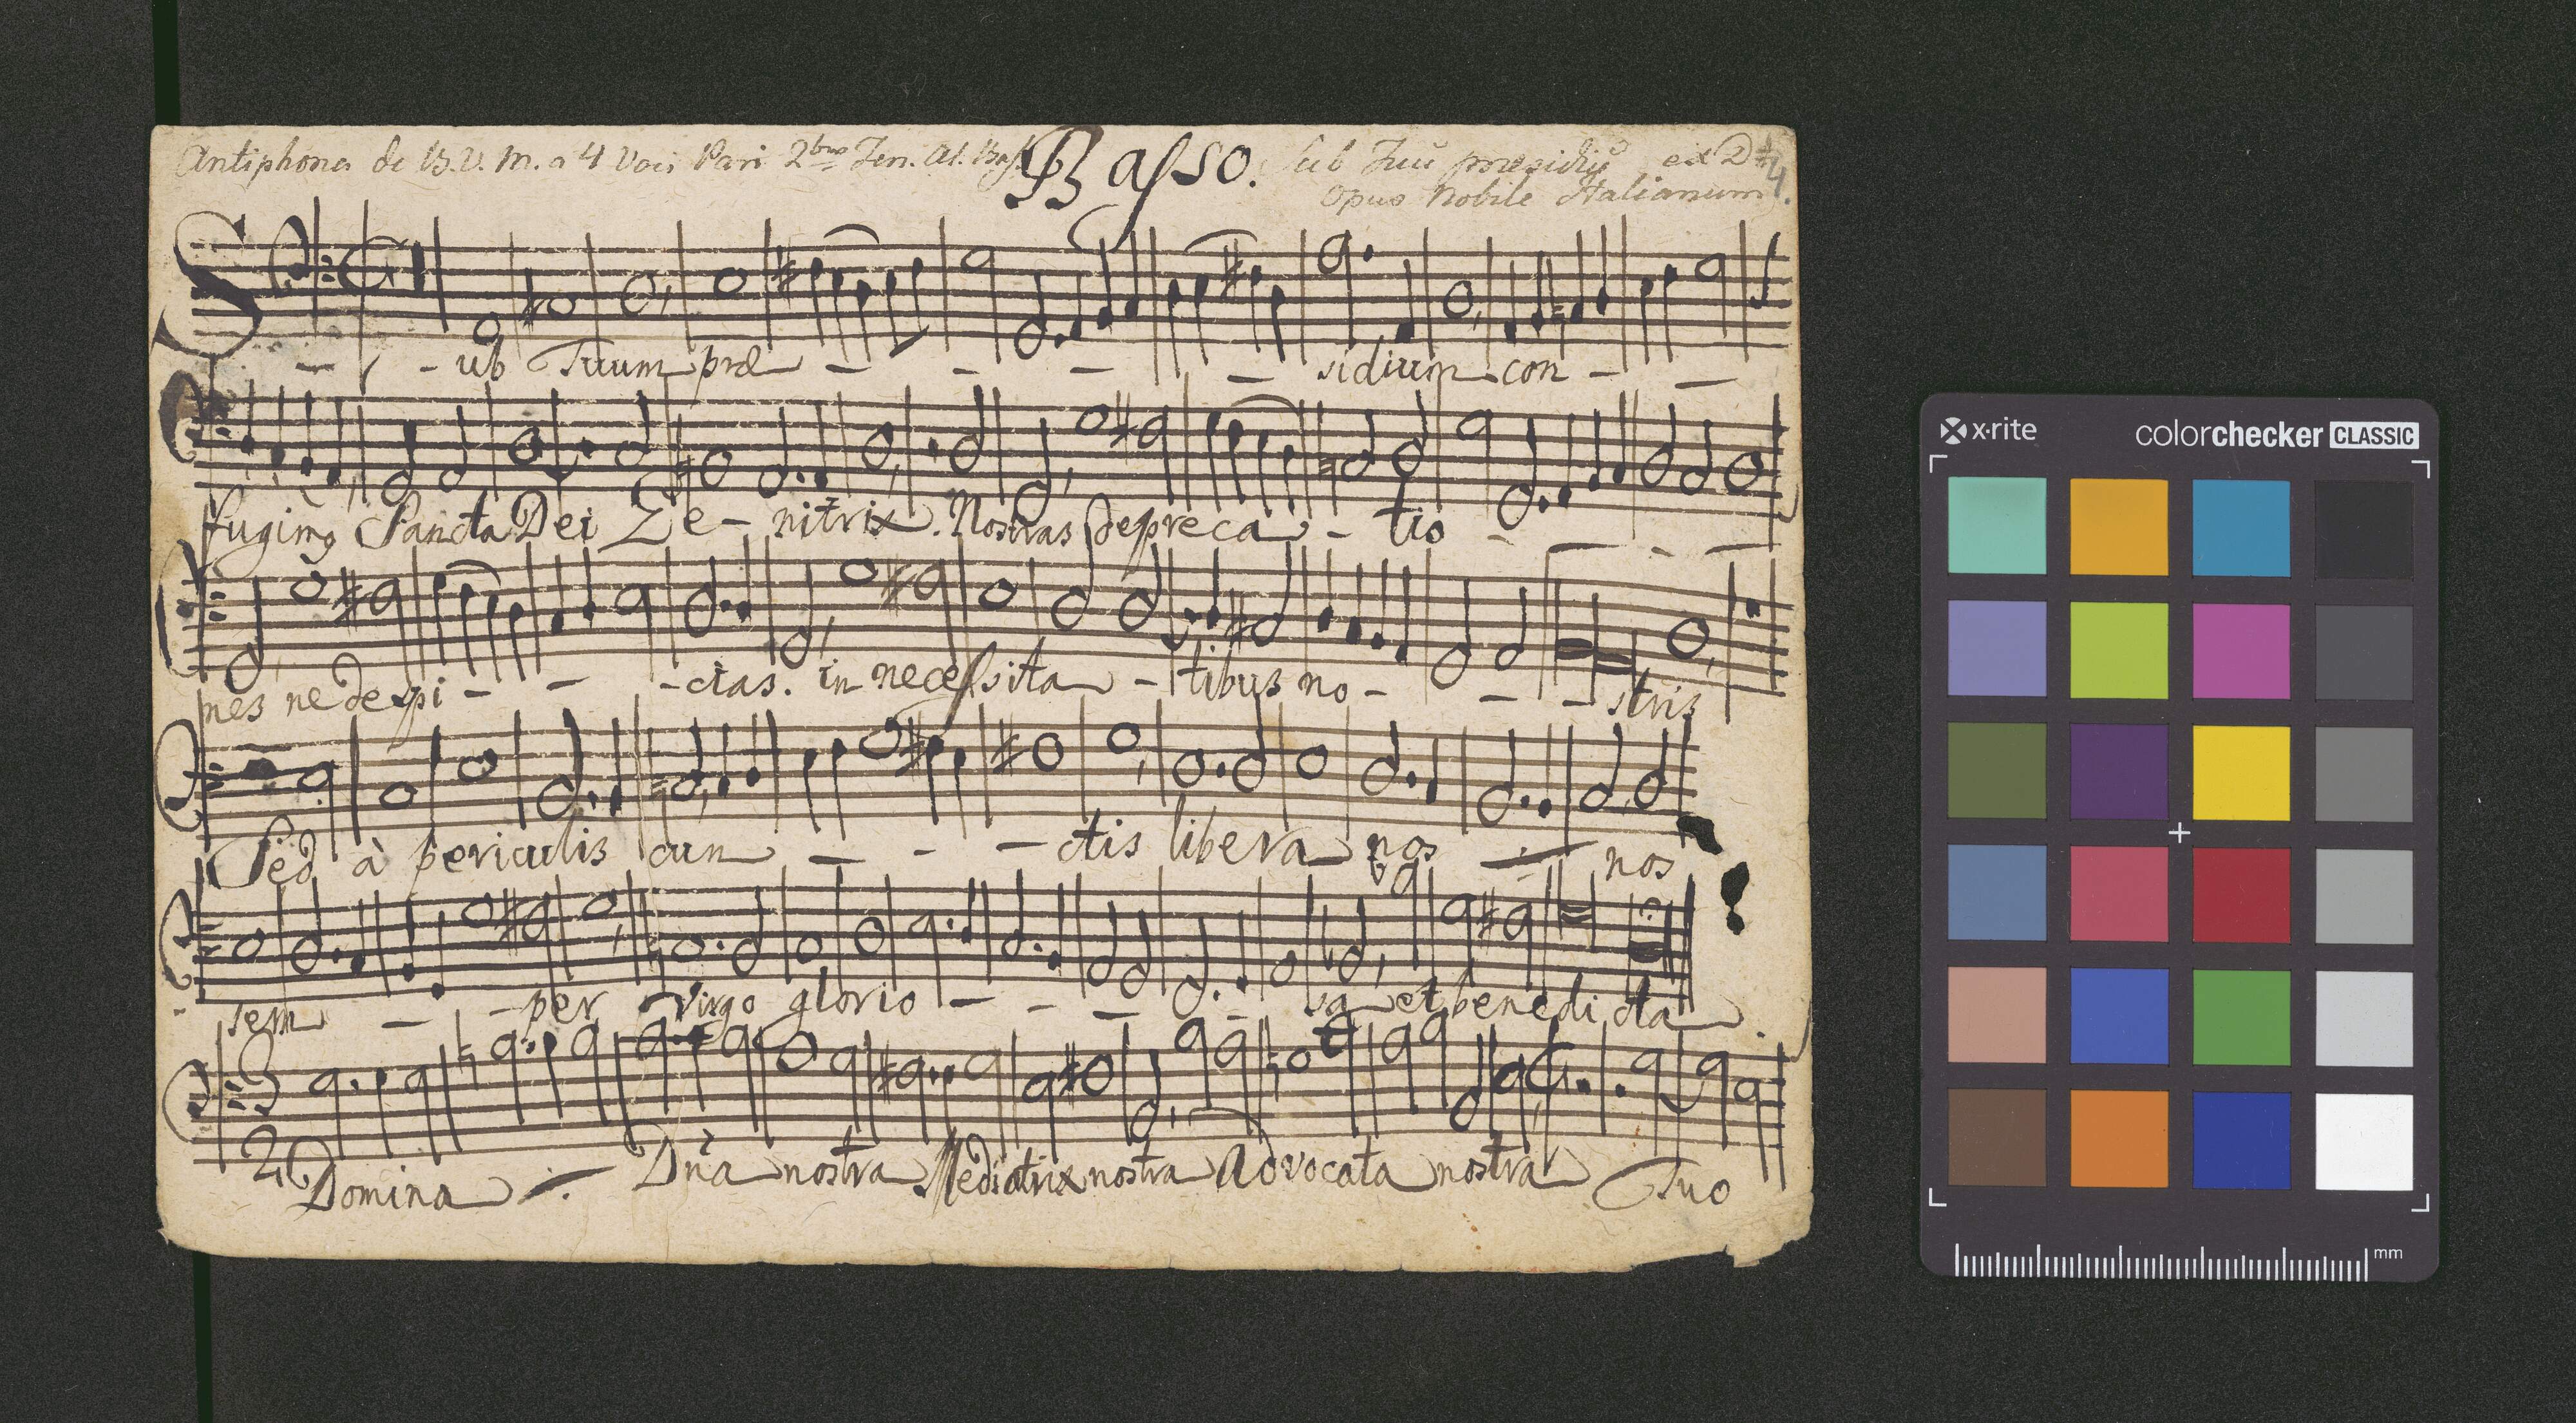 Antiphona de B.V.M. a 4 Voci Pari 2bus Ten. Al. Bass. Basso. Sub Tuū præsidiū ex D#
Opus Nobile Italianum.
4
Sub Tuum præ - - - - sidium con - -
fugimus Sancta Dei Ge - nitrix. Nostras depreca - tio - - -
nes ne despi - - - cias. in necessita - tibus no - - - stris
Sed à periculis cun - - - ctis libera nos ·/· nos
- sem - - per Virgo glorio - - - - sa et benedicta.
3
2 Domina ·/· Dña nostra Mediatrix nostra Advocata nostra Tuo
x·rite
colorchecker CLASSIC
mm